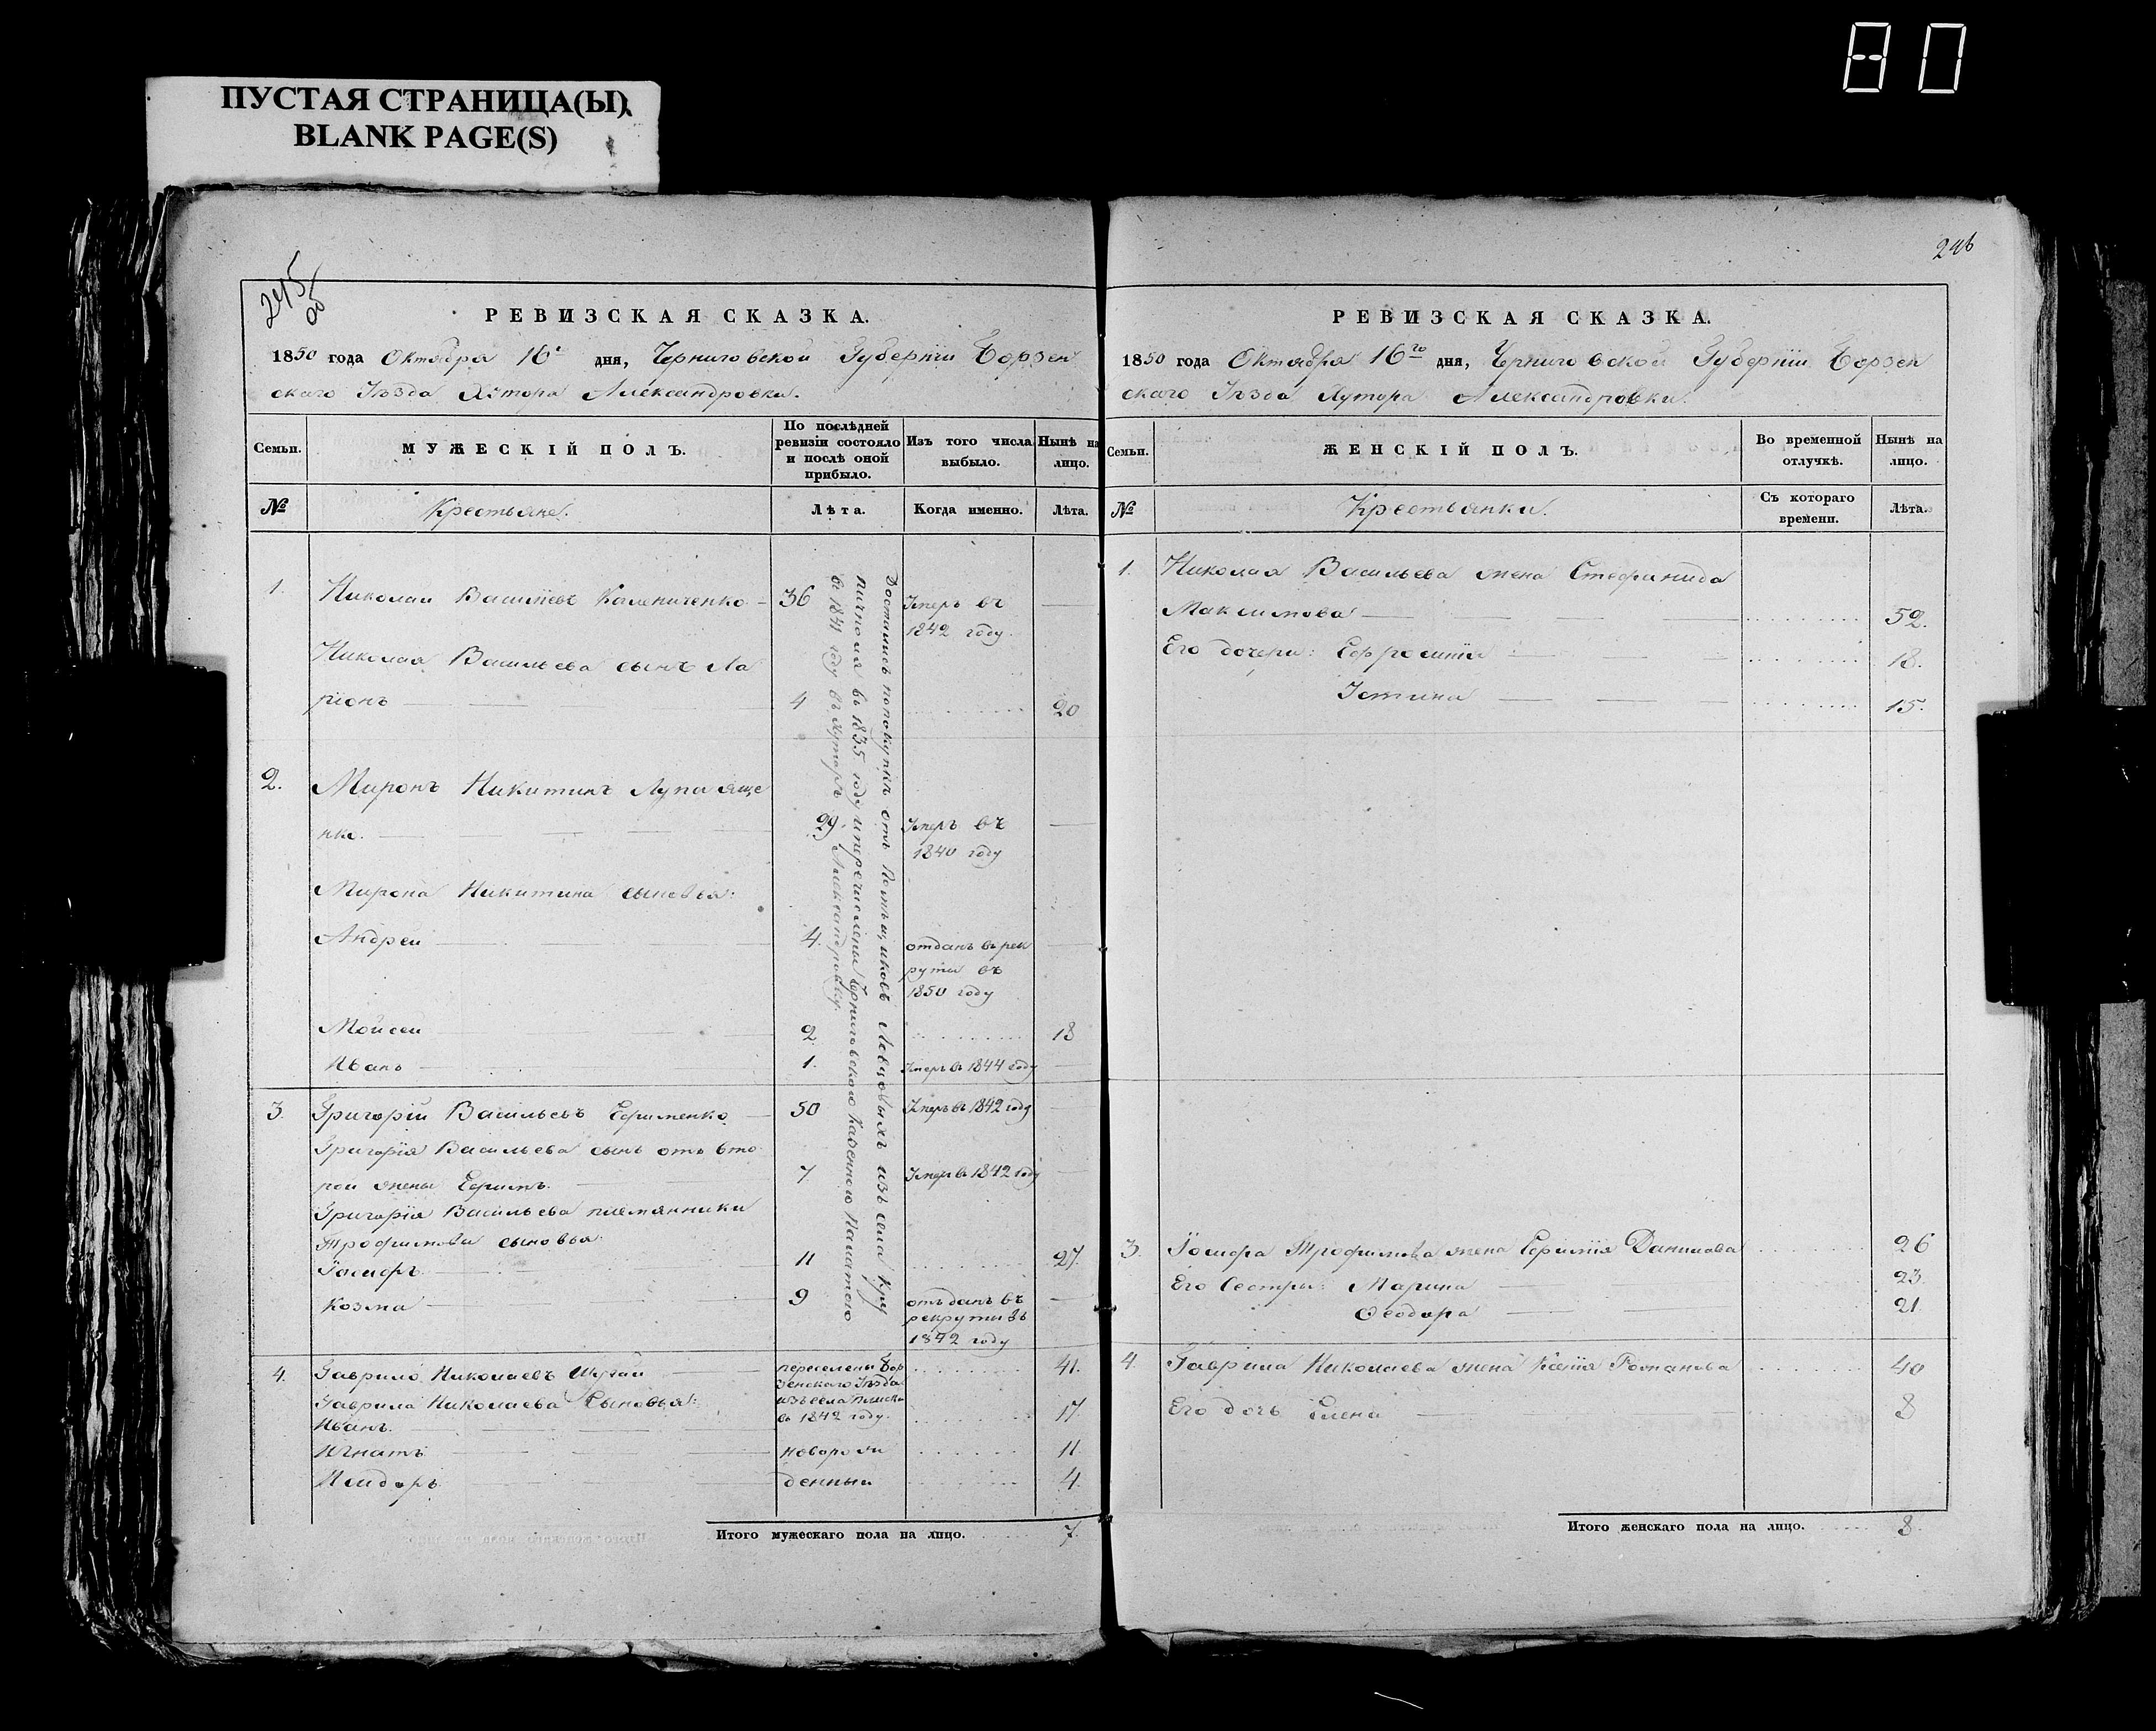 80
ПУСТАЯ СТРАНИЦА(Ы)
BLANK PAGE(S)
245
об
РЕВИЗСКАЯ СКАЗКА.
1850 года Октября 16 дня, Черниговской Губернїи Борзен
скаго Уѣзда Хутора Александровки.
Семьи.
МУЖЕСКІЙ ПОЛЪ.
По послѣдней ревизіи состояло и послѣ оной прибыло.
Изъ того числа выбыло.
Нынѣ на лицо.
№
Крестьяне.
Лѣта.
Когда именно.
Лѣта.
1. Николай Васильевъ Калениченко 36 Умеръ въ
1842 году.
Николая Васильева сынъ Ла
рїонъ 4 20
2. Миронъ Никитинъ Лупаяще
нко. 29 Умеръ въ
1840 году
Мирона Никитина сыновья:
Андрей 4. отданъ въ рек
руты въ
1850 году
Мойсей 2 18
Иванъ 1. Умеръ въ 1844 году
3. Григорїй Васильевъ Ефименко 50 Умеръ въ 1842 году
Григорїя Васильева сынъ отъ вто
рой жены Ефимъ. 7 Умеръ въ 1842 году
Григорїя Васильева племянники
Трофимовы сыновья:
Іосифъ 11 27
Козма 9 отъданъ въ
рекруты въ
1842 году
4. Гаврило Николаевъ переселены Бор 41.
зенскаго Уѣзда
Гаврила Николаева Сыновья: изъ села
Иванъ. въ 1842 году. 17
Игнатъ новорож 11
Исидоръ денныи 4
Достались по покупкѣ отъ Помѣщиковъ изъ села Кру
пичполя въ 1835 году и перечислены Черниговскою Казенною Палатою
въ 1841 году въ Хуторъ Александровку.
Итого мужескаго пола на лицо. 7.
246
РЕВИЗСКАЯ СКАЗКА.
1850 года Октября 16го дня, Черниговской Губернїи Борзен
скаго Уѣзда Хутора Александровки.
Семьи.
ЖЕНСКІЙ ПОЛЪ.
Во временной отлучкѣ.
Нынѣ на лицо.
№
Крестьянки.
Съ котораго времени.
Лѣта.
1. Николая Васильева жена Стефанида
Максимова 52.
Его дочери: Ефросинїя 18.
Устина 15.
3. Іосифа Трофимова жена Ефимїя Данилова 26
Его Сестры: Марина 23
Феодора 21.
4. Гаврила Николаева жена Ксенїя Романова 40
Его дочь Елена 8
Итого женскаго пола на лицо. 8.